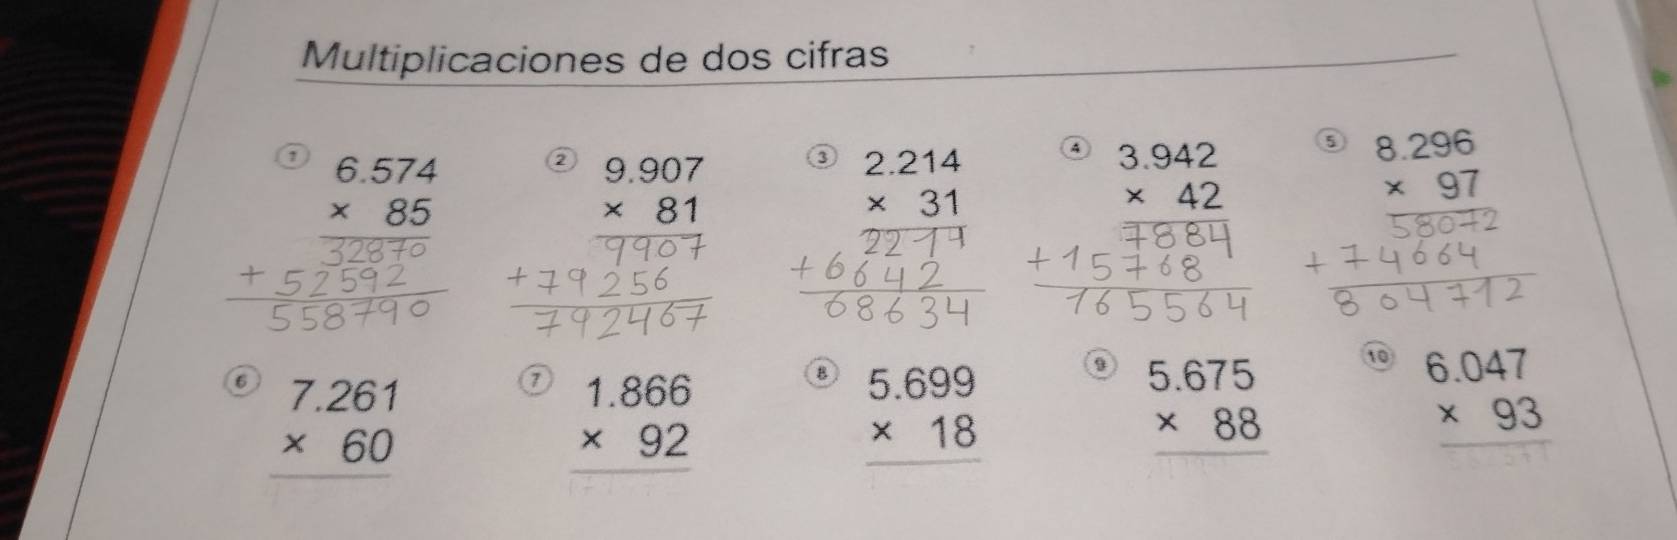 Multiplicaciones de dos cifras
① 6.574 ② 9.907 ③ 2.214 ④ 3.942 ⑤ 8.296
× 85 × 81 × 31 × 42 × 97
32870 9907 2214 7884 58072
+ 52592 + 79256 + 6642 + 15768 + 74664
558790 792467 68634 165564 804712
⑥ 7.261 ⑦ 1.866 ⑧ 5.699 ⑨ 5.675 ⑩ 6.047
× 60 × 92 × 18 × 88 × 93